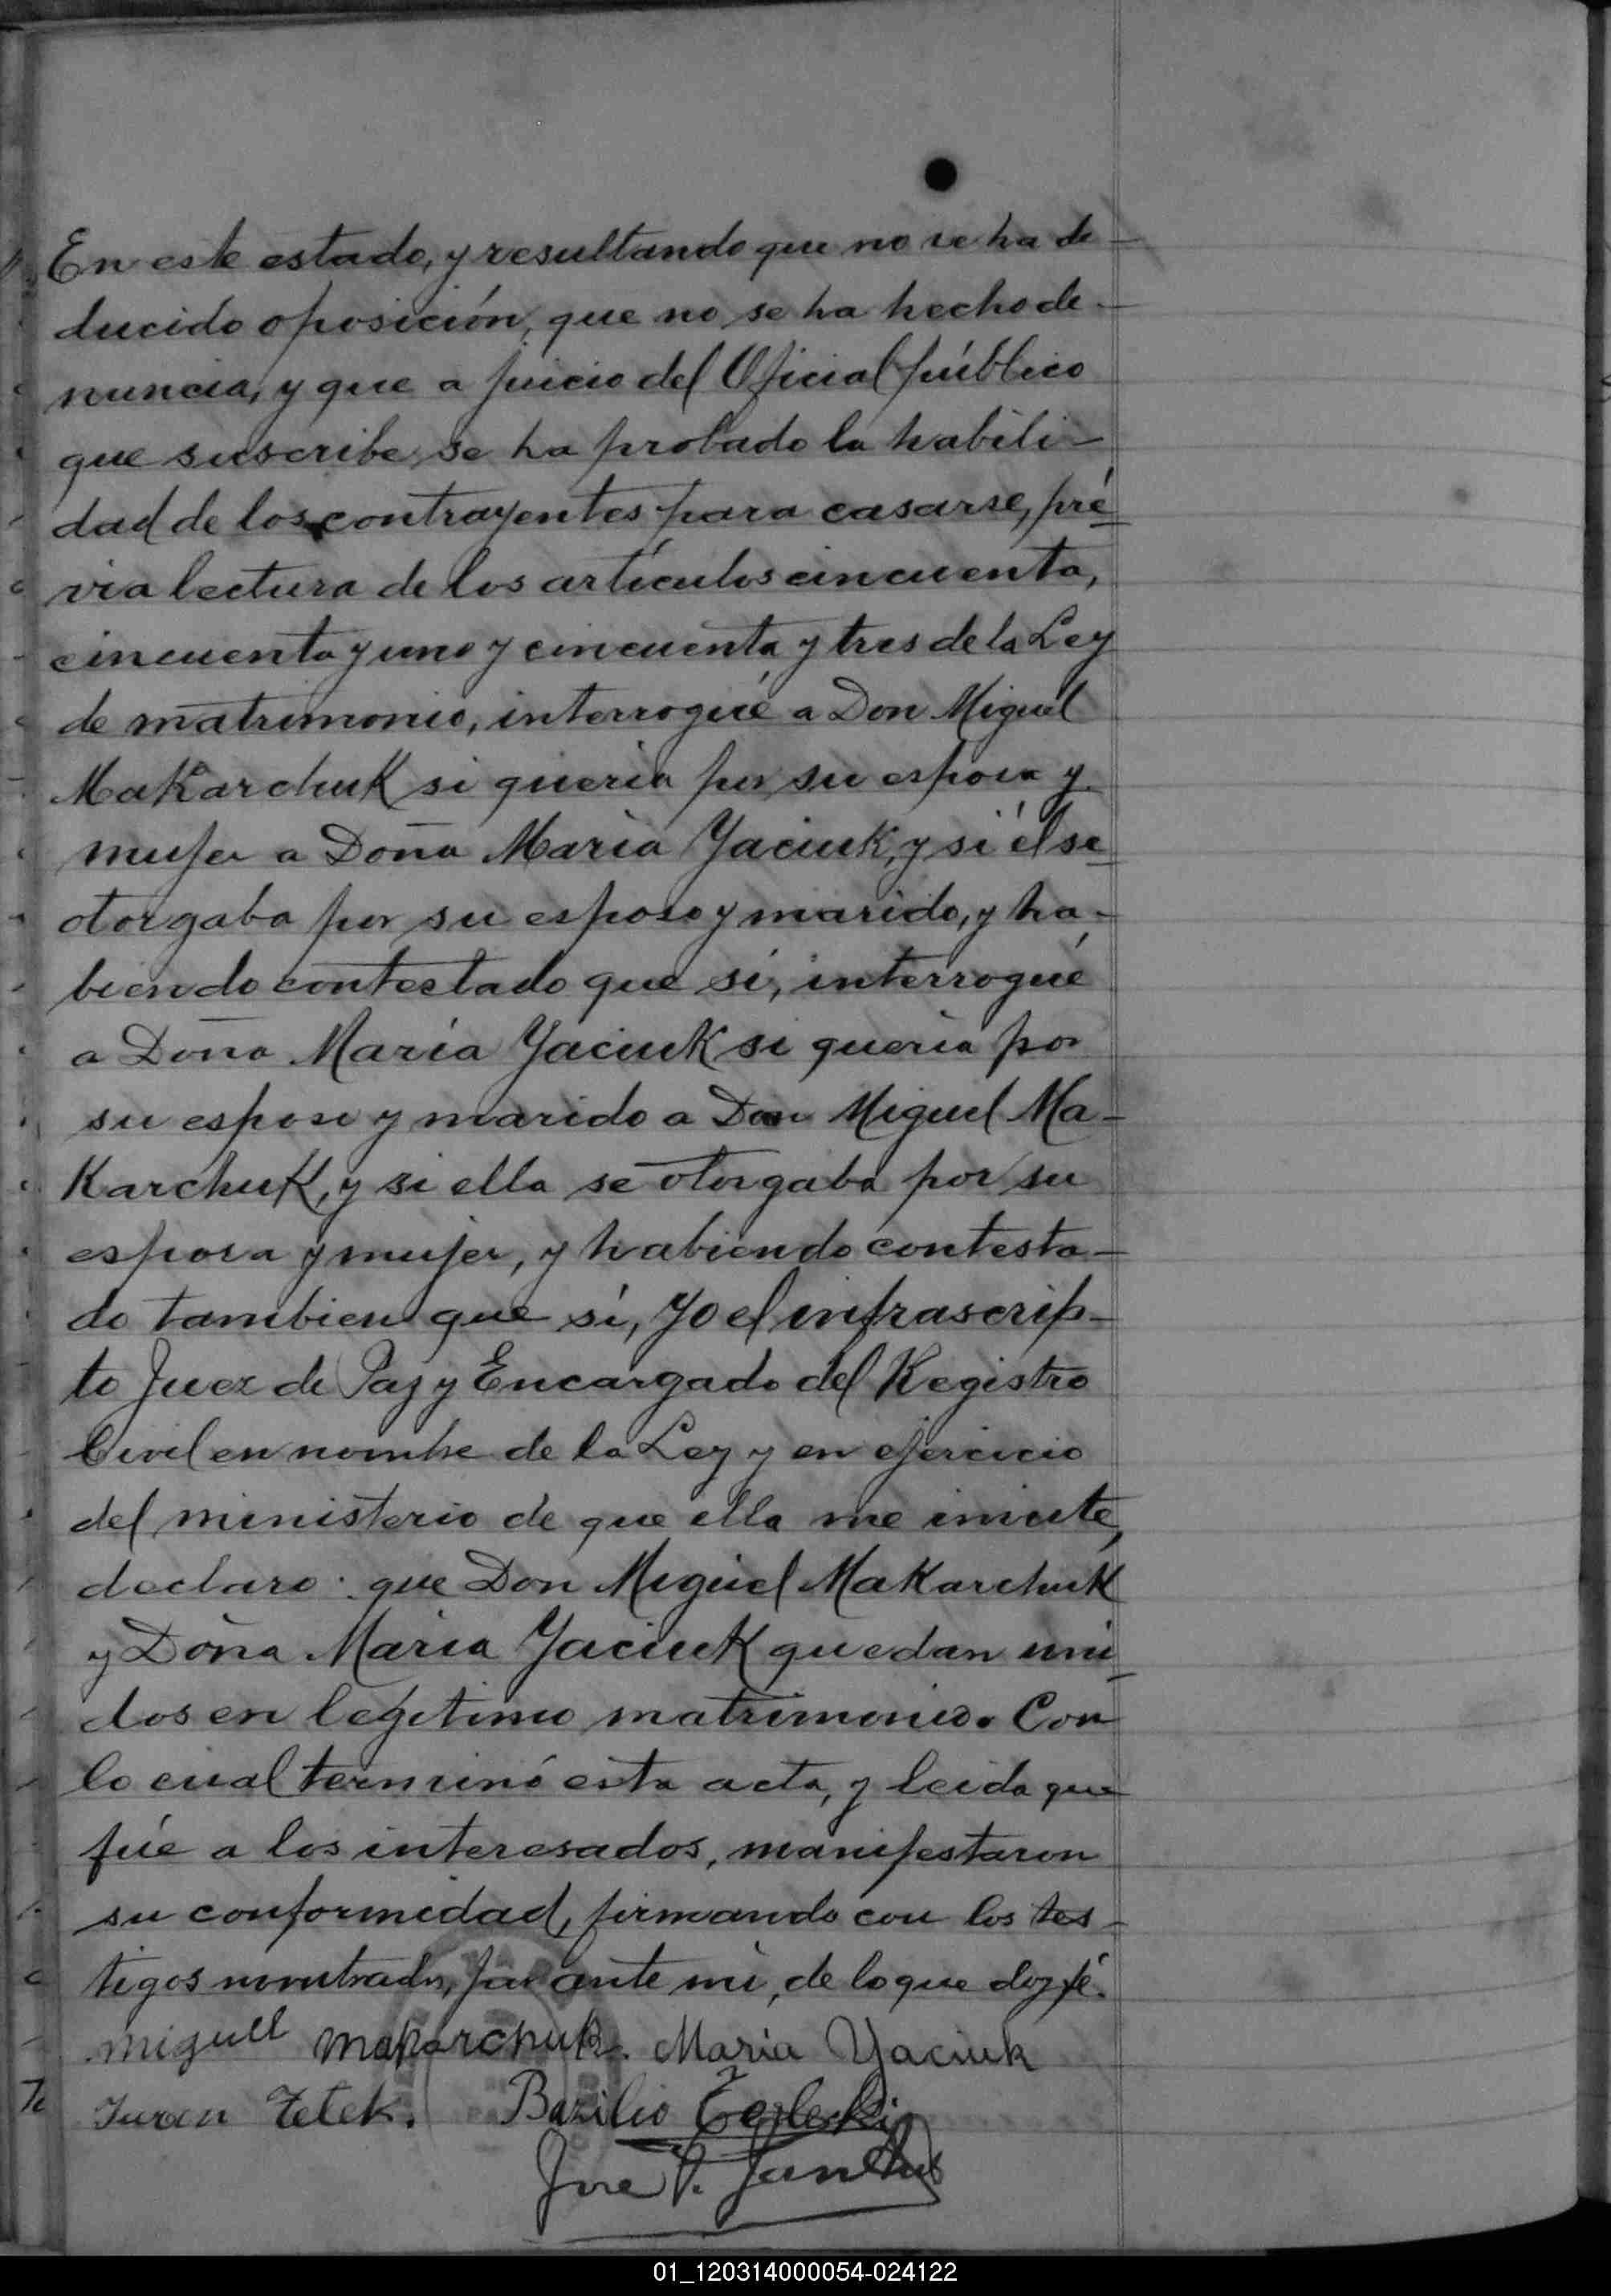 En este estado, y resultando que no se ha de-
ducido oposición, que no se ha hecho de-
nuncia, y que a juicio del Oficial público
que suscribe se ha probado la habili-
dad de los contrayentes para casarse, pré-
via lectura de los artículos cincuenta,
cincuenta y uno y cincuenta y tres de la Ley
de matrimonio, interrogué a Don Miguel
Makarchuk si quería por su esposa y
mujer a Doña María Yaciuk, y si él se
otorgaba por su esposo y marido, y ha-
biendo contestado que sí, interrogué
a Doña María Yaciuk si quería por
su esposo y marido a Don Miguel Ma-
karchuk, y si ella se otorgaba por su
esposa y mujer, y habiendo contesta-
do tambien que sí, Yo el infrascrip-
to Juez de Paz y Encargado del Registro
Civil en nombre de la Ley y en ejercicio
del ministerio de que ella me inviste,
declaro: que Don Miguel Makarchuk
y Doña María Yaciuk quedan uni-
dos en legítimo matrimonio. Con
lo cual terminó esta acta, y leida que
fué a los interesados, manifestaron
su conformidad, firmando con los tes-
tigos nombrados, por ante mi, de lo que doy fé.
Miguel Makarchuk. Maria Yaciuk
Iwan Zelek. Bazilio
José
01_120314000054-024122